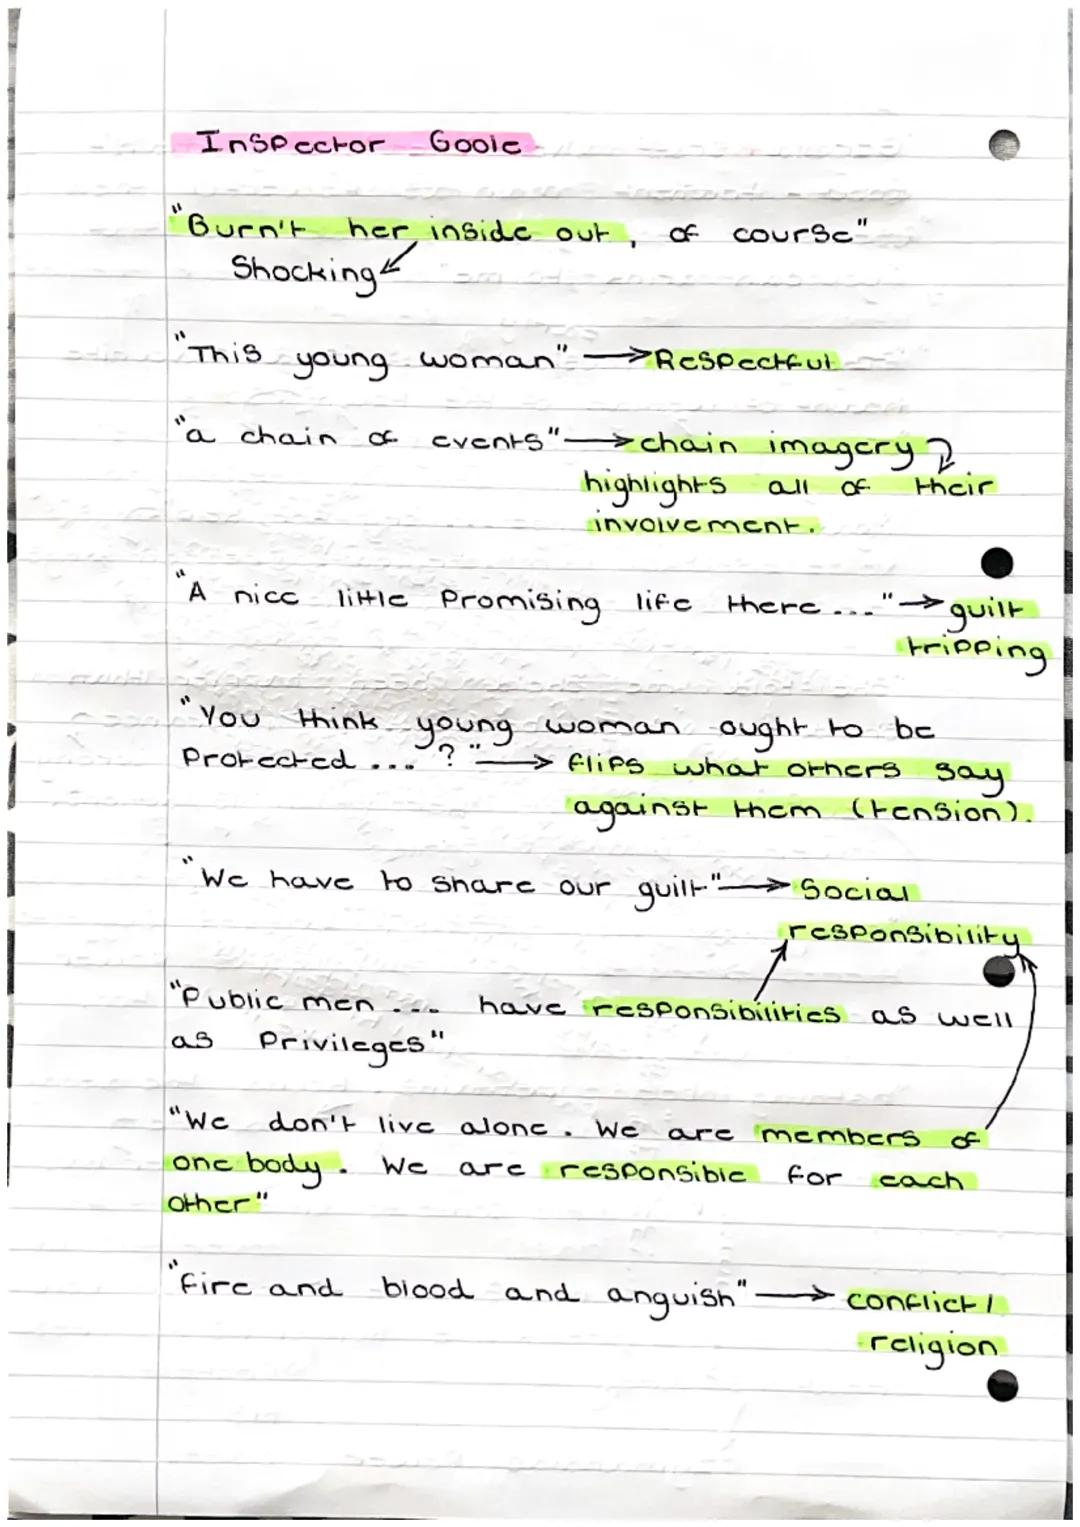 Inspector Goole
"Burn't her inside out, of course"
Shocking
"This young woman" → Respectful
"a chain of events" → chain imagery
highlights all of their
involvement.
"A nice little Promising life there..." → guilt
tripping
"You think young woman ought to be
Protected ... ?" → flips what others say
against them (tension).
"We have to share our guilt" → Social
responsibility
"Public men ... have responsibilities as well
as Privileges"
"We don't live alone. We are members of
one body. We are responsible for each
other"
"fire and blood and anguish" → conflict /
religion